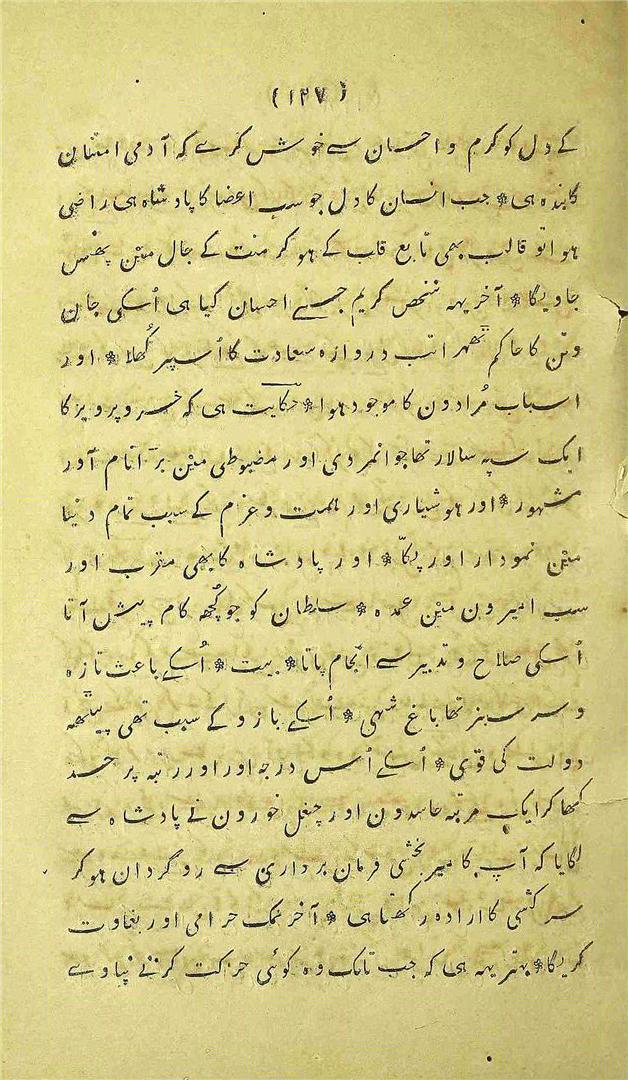 (۱۲۷)
کے دل کو کرم و احسان سے خوش کرے کہ آدمی امتنان
کا بندہ ہی * جب انسان کا دل جو سب اعضا کا پادشاہ ہی راضی
ہوا تو قالب بھی تابع قلب کے ہو کر منت کے جال میٖن پھنس
جاویگا * آخر یہہ شخص کریم جسنے احسان کیا ہی اُسکی جان
و تن کا حاکم ٹھہرا تب دروازہ سعادت کا اُسپر کُھلا * اور
اسباب مُرادون کا موجود ہوا * حکایت ہی کہ خسرو پرویز کا
ایک سپہ سالار تھا جوانمردی اور مضبوطی میٖن بڑا نام آور
مشہور * اور ہوشیاری اور ہمت و عزم کے سبب تمام دنیا
میٖن نمودار اور پکّا * اور پادشاہ کا بھی مقرب اور
سب امیرون میٖن عمدہ * سلطان کو جو کُچھ کام پیش آتا
اُسکی صلاح و تدبیر سے انجام پاتا * بیت * اُسکے باعث تازہ
و سر سبز تھا باغ شہی * اُسکے بازو کے سبب تھی پیٹھہ
دولت کی قوی * اُسکے اُس درجہ اور اور رتبہ پر حسد
کھا کر ایک مرتبہ حاسدون اور چغل خورون نے پادشاہ سے
لگایا کہ آپ کا میر بخشی فرمان برداری سے رو گردان ہو کر
سر کشی کا ارادہ رکھتا ہی * آخر نمک حرامی اور بغاوت
کریگا * بہتر یہہ ہی کہ جب تلک وہ کوئی حرکت کرنے نپاوے